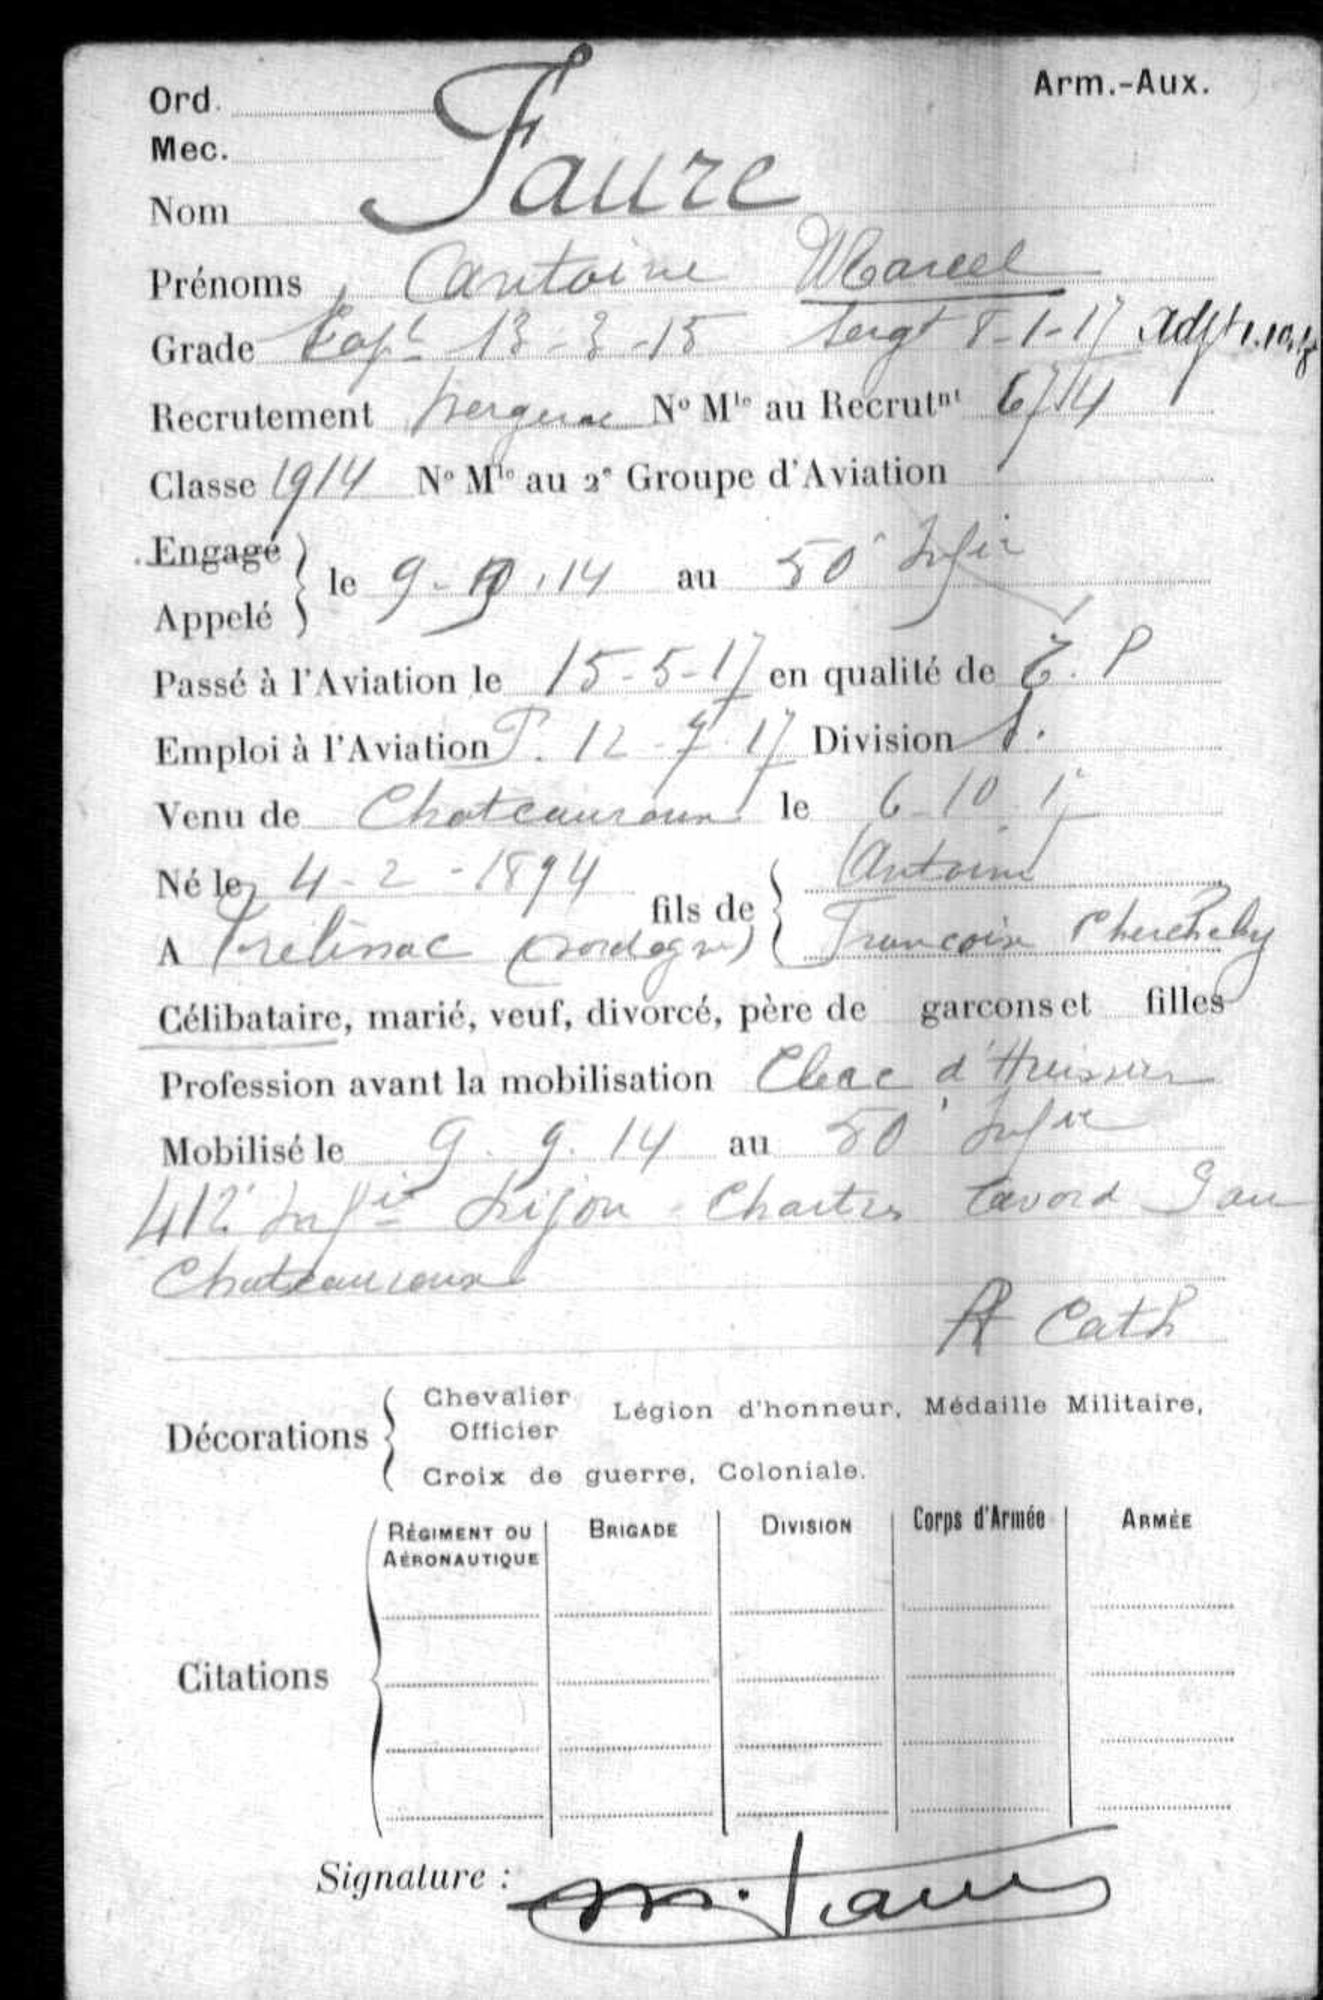 Arm.-Aux.
Ord.
Mec.
Nom Faure
Prénoms Antoine Marcel
Grade Cap^l 13-3-15 Sergt 8-1-17 Adjt 1.10.
Recrutement Bergerac N° M^le au Recrut^nt 6714
Classe 1914 N° M^le au 2^e Groupe d'Aviation
Engagé
Appelé } le 9-9.14 au 50^e Infie
Passé à l'Aviation le 15-5-17 en qualité de E.P
Emploi à l'Aviation P. 12-7-17 Division
Venu de Chateauroux le 6-10-17
Né le 4-2-1894 fils de { Antoine
A Trelissac (Dordogne) Francoise
Célibataire, marié, veuf, divorcé, père de garcons et filles
Profession avant la mobilisation Clerc d'Huissier
Mobilisé le 9.9.14 au 50^e Infie
412^e Infie Dijon - Chartres Avord Pau
Chateauroux
Cath
Décorations { Chevalier Officier Légion d'honneur, Médaille Militaire,
Croix de guerre, Coloniale.
Citations { RÉGIMENT OU AÉRONAUTIQUE BRIGADE DIVISION Corps d'Armée ARMÉE
Signature : M. Faure